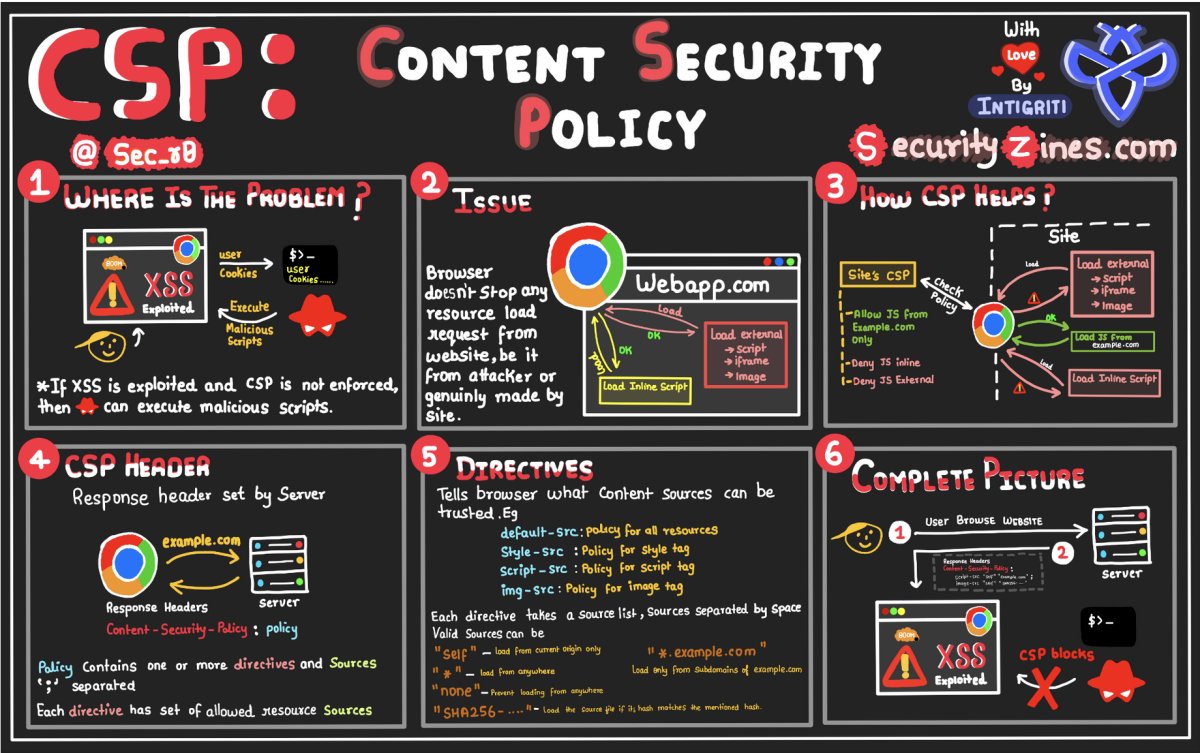 CSP:
CONTENT SECURITY
POLICY
With
Love
By
INTIGRITI
@ Sec_r0
Security Zines.com
1
WHERE IS THE PROBLEM?
BOOM
XSS
Exploited
user
Cookies
$>_
user
Cookies.....
Execute
Malicious
Scripts
*If XSS is exploited and CSP is not enforced,
then can execute malicious scripts.
2
ISSUE
Browser
doesn't stop any
resource load
request from
website, be it
from attacker or
genuinly made by
site.
Webapp.com
Load
OK
OK
Load
Load Inline Script
Load external
→ Script
→ iframe
→ Image
3
HOW CSP HELPS?
Site
Site's CSP
Check
Policy
- Allow JS from
Example.com
only
- Deny JS inline
- Deny JS External
Load
Load external
→ Script
→ iframe
→ Image
OK
Load JS from
example.com
Load
Load Inline Script
4
CSP HEADER
Response header set by Server
example.com
Response Headers
SERVER
Content-Security-Policy : policy
Policy contains one or more directives and Sources
';' separated
Each directive has set of allowed resource Sources
5
DIRECTIVES
Tells browser what content sources can be
trusted. Eg
default-src : policy for all resources
Style-src : Policy for style tag
Script-src : Policy for script tag
img-src : Policy for image tag
Each directive takes a source list, Sources separated by space
Valid Sources can be
"self" - load from current origin only
"*.example.com"
Load only from subdomains of example.com
"*" - load from anywhere
"none" - Prevent loading from anywhere
"SHA256-....." - Load the source file if its hash matches the mentioned hash.
6
COMPLETE PICTURE
1
USER BROWSE WEBSITE
2
SERVER
Response Headers
Content-Security-Policy :
script-src "self" "example.com" ;
BOOM
XSS
Exploited
$>_
CSP blocks